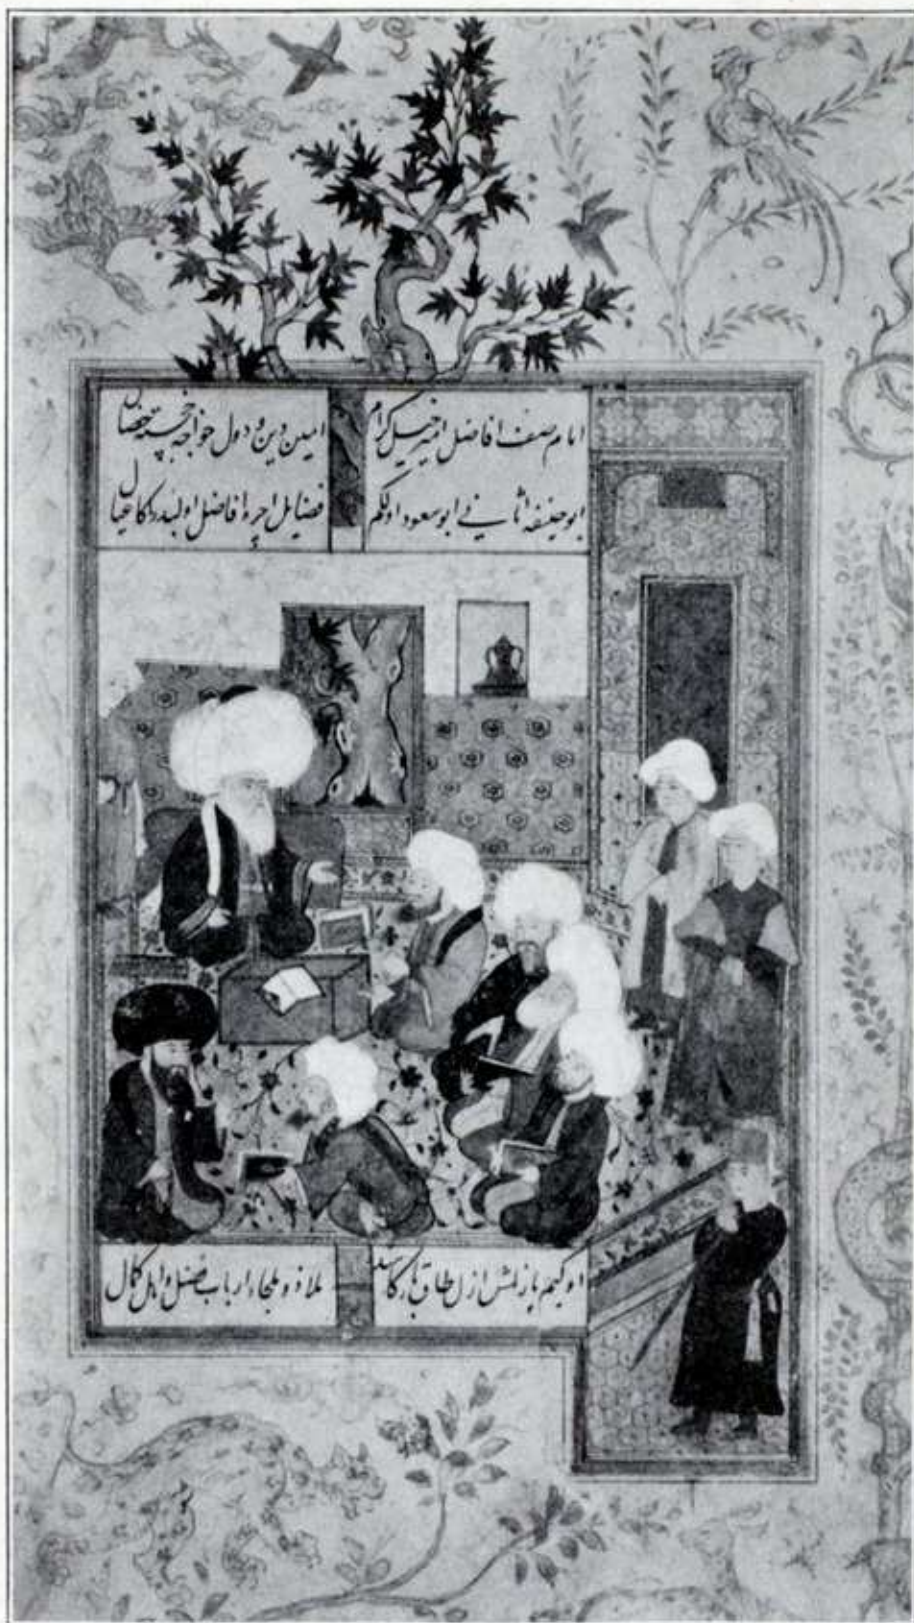 امام صف افاضل امیر خیل کرام
امین دین و دول خواجه خجسته خصال
ابو حنیفه ثانی ابو سعود اولکم
فضایل اچره افاضل اولبدر اکا عیال
اوکیم یازلمش ازل طاق
ملاذ و ملجاء ارباب فضل و اهل کمال